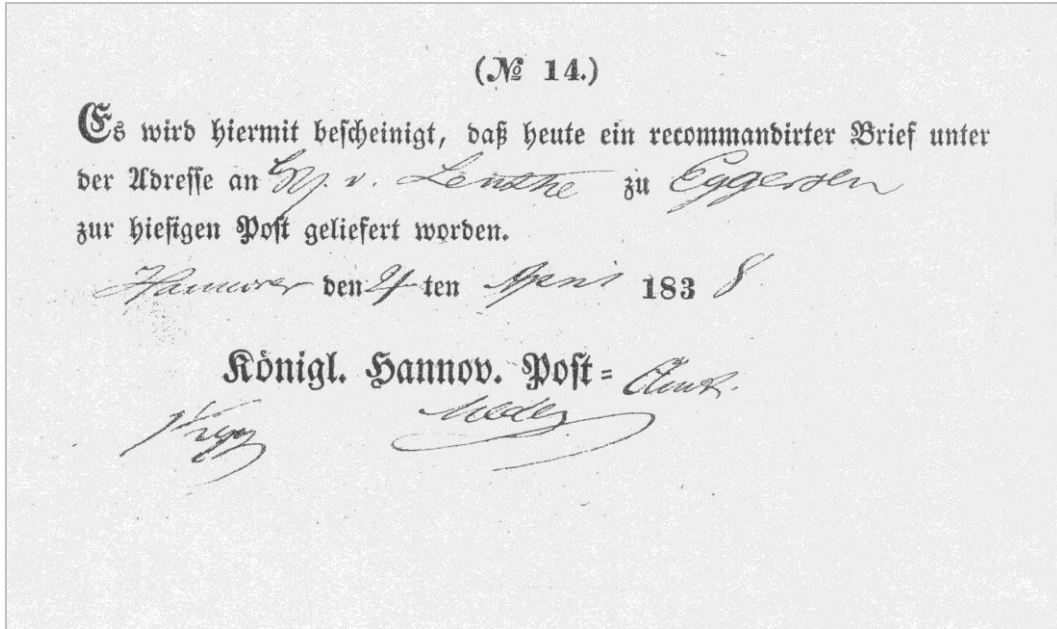 (№ 14.)
Es wird hiermit bescheinigt, daß heute ein recommandirter Brief unter
der Adresse an v. Lenthe zu Eggersen
zur hiesigen Post geliefert worden.
Hannover den ten April 1838
Königl. Hannov. Post= Amt.